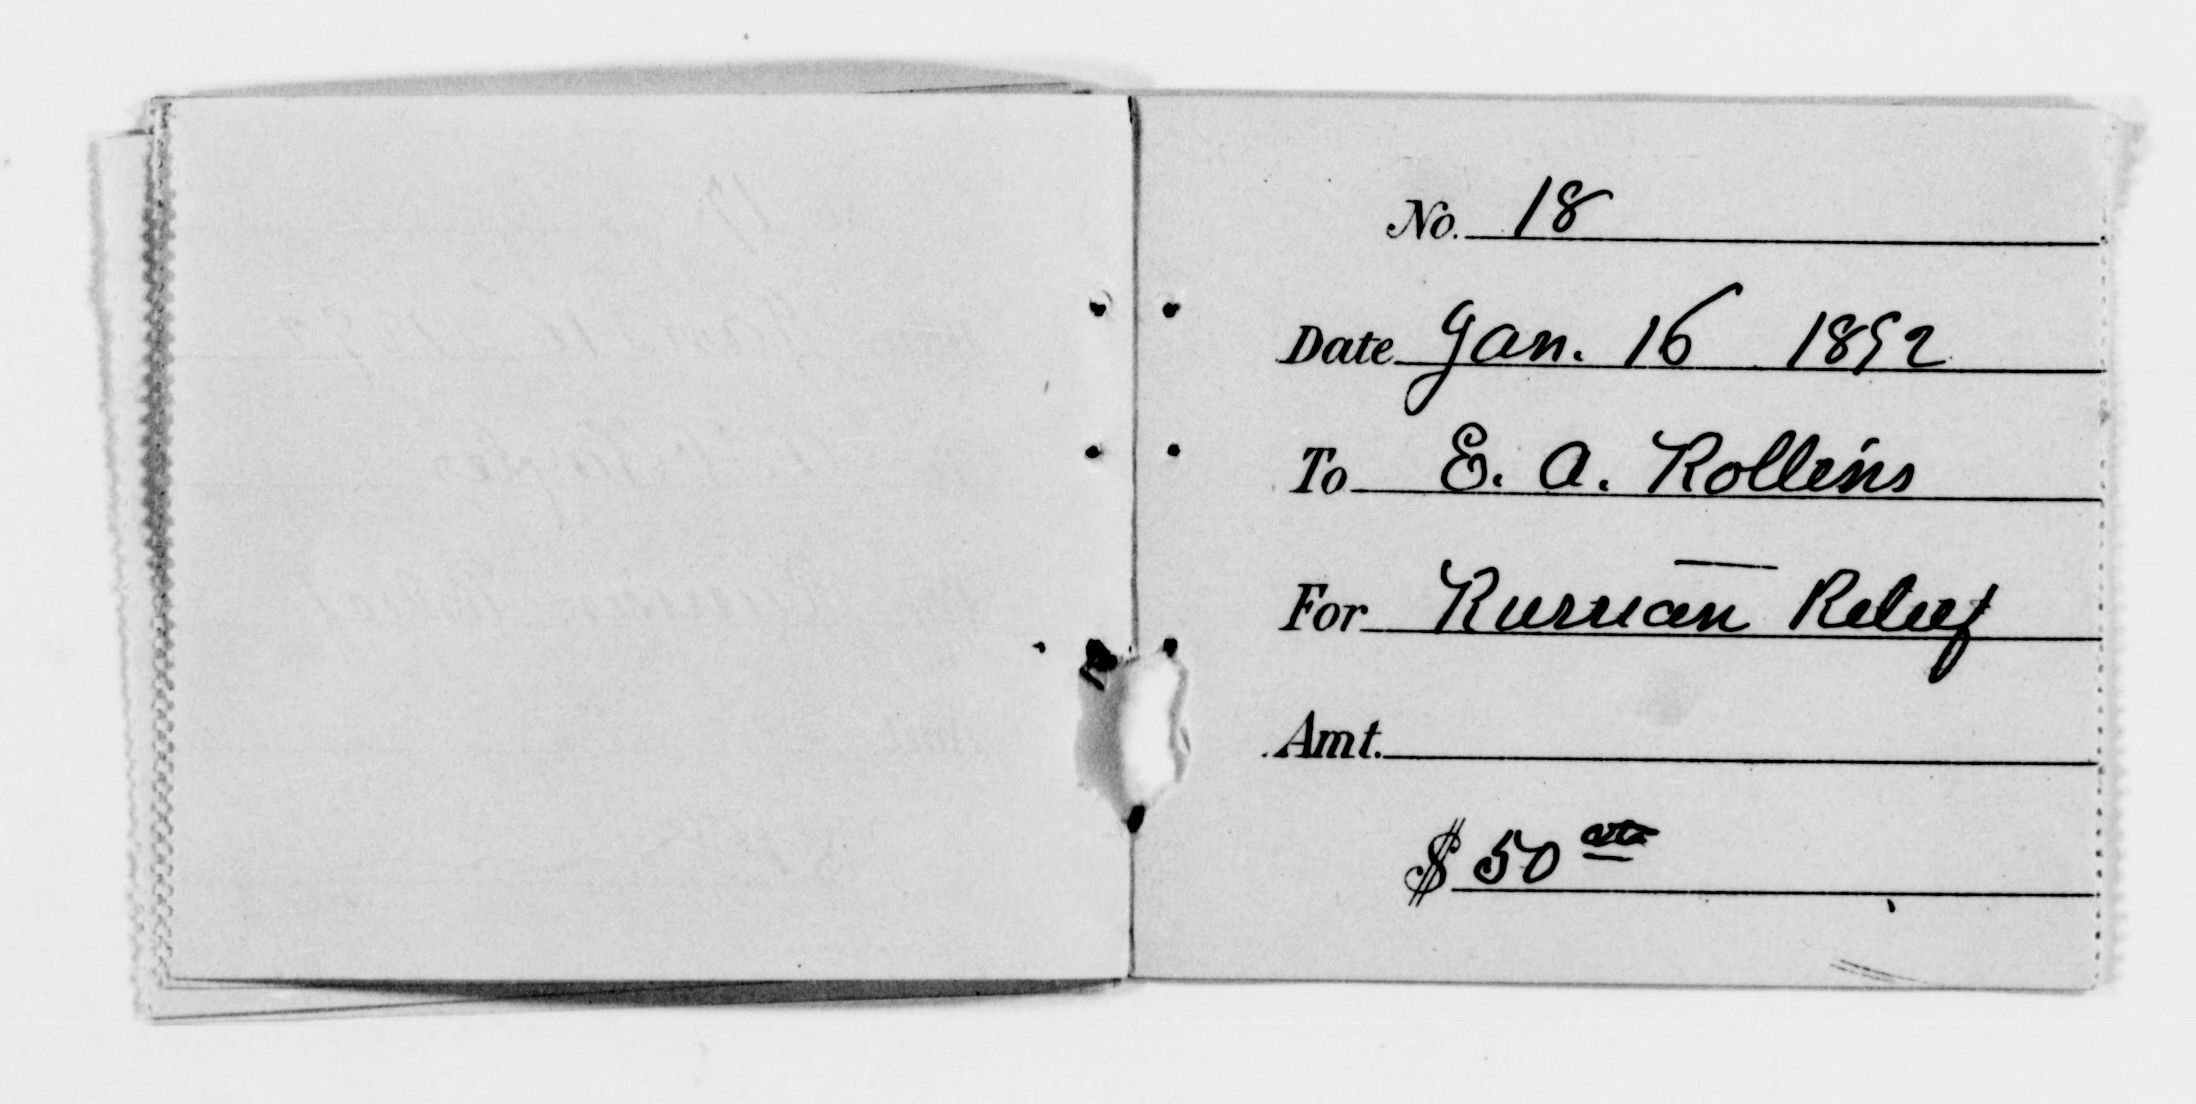 No. 18
Date Jan. 16 1892
To E. A. Rollins
For Russian Relief
Amt.
$ 50